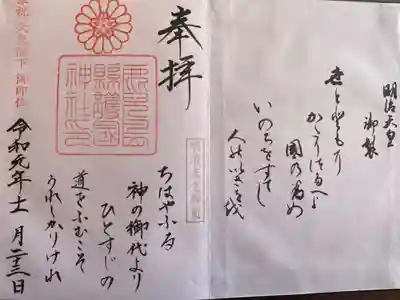 明治天皇
御製
世とともに
かたりつたへよ
國の為め
いのちをすてし
人のいさをを
奉拝
明治天皇御製
縣護國
神社
ちはやふる
神の御代より
ひとすじの
道をふむこそ
うれしかりけれ
奉祝 天皇陛下 御即位
令和元年十一月二十三日